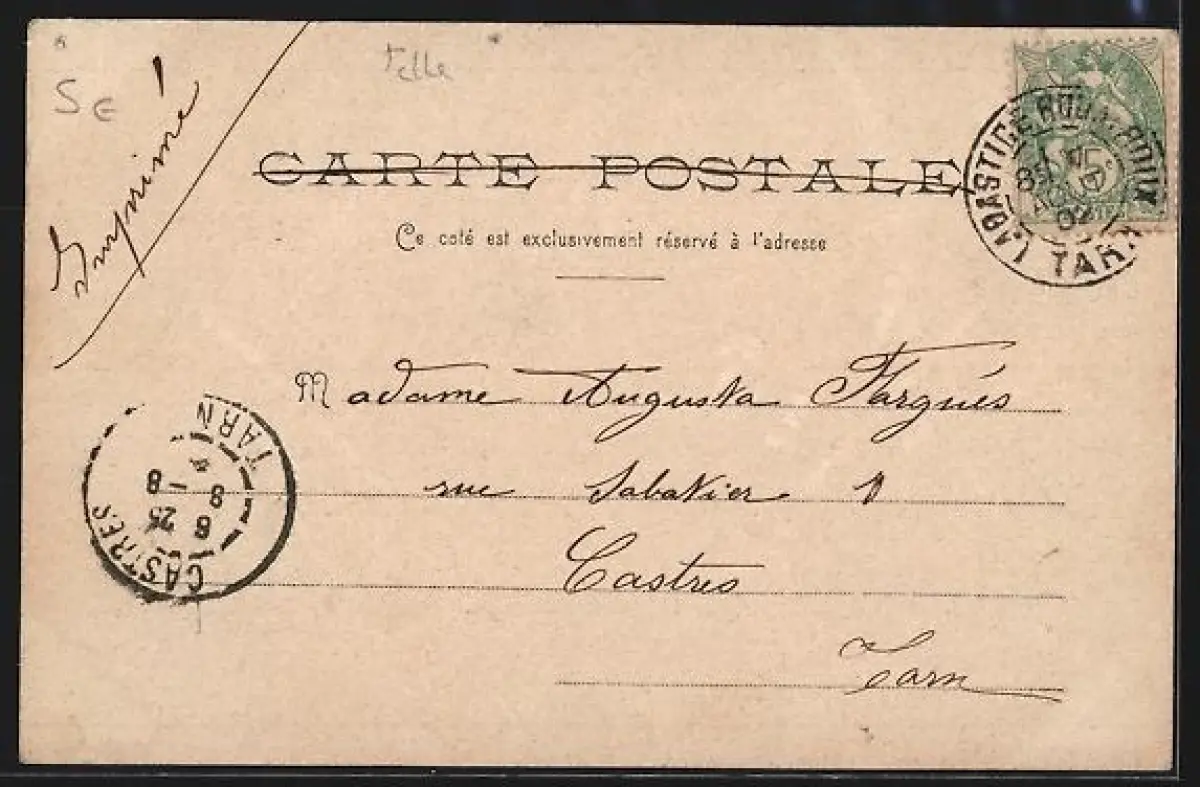 5 €
Felle
Imprimé
CARTE POSTALE
Ce coté est exclusivement réservé à l'adresse
LABASTIDE ROUAIROUX
TARN
Madame Augusta Fargués
rue Sabatier 1
Castres
Tarn
CASTRES
TARN
6 25
8 - 8